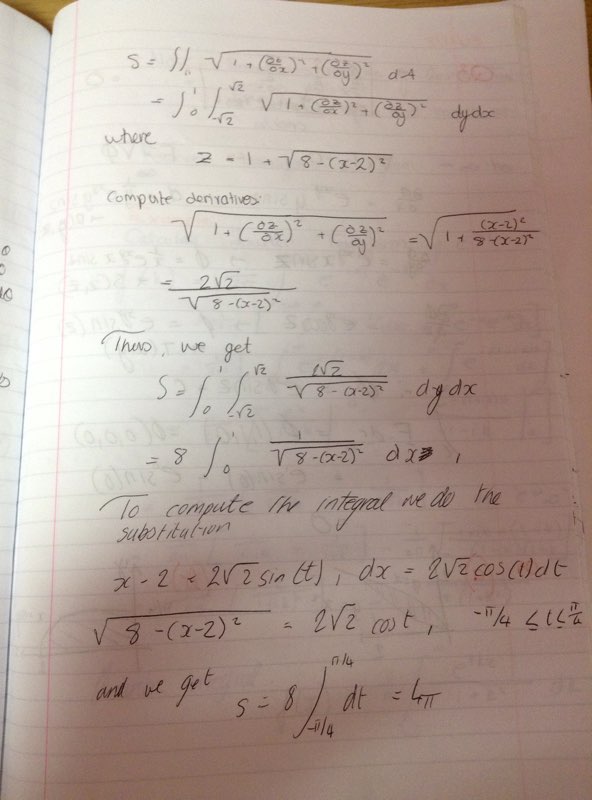 S = ∬ √(1 + (∂z/∂x)² + (∂z/∂y)²) dA
= ∫₀¹ ∫_{-√2}^{√2} √(1 + (∂z/∂x)² + (∂z/∂y)²) dydx
where
z = 1 + √(8-(x-2)²)
Compute derivatives:
√(1 + (∂z/∂x)² + (∂z/∂y)²) = √(1 + (x-2)²/(8-(x-2)²))
= 2√2/√(8-(x-2)²)
Thus, we get
S = ∫₀¹ ∫_{-√2}^{√2} 2√2/√(8-(x-2)²) dy dx
= 8 ∫₀¹ 1/√(8-(x-2)²) dx,
To compute the integral we do the
substitution
x - 2 = 2√2 sin(t), dx = 2√2 cos(t) dt
√(8-(x-2)²) = 2√2 cost, -π/4 ≤ t ≤ π/4
and we get
S = 8 ∫_{-π/4}^{π/4} dt = 4π